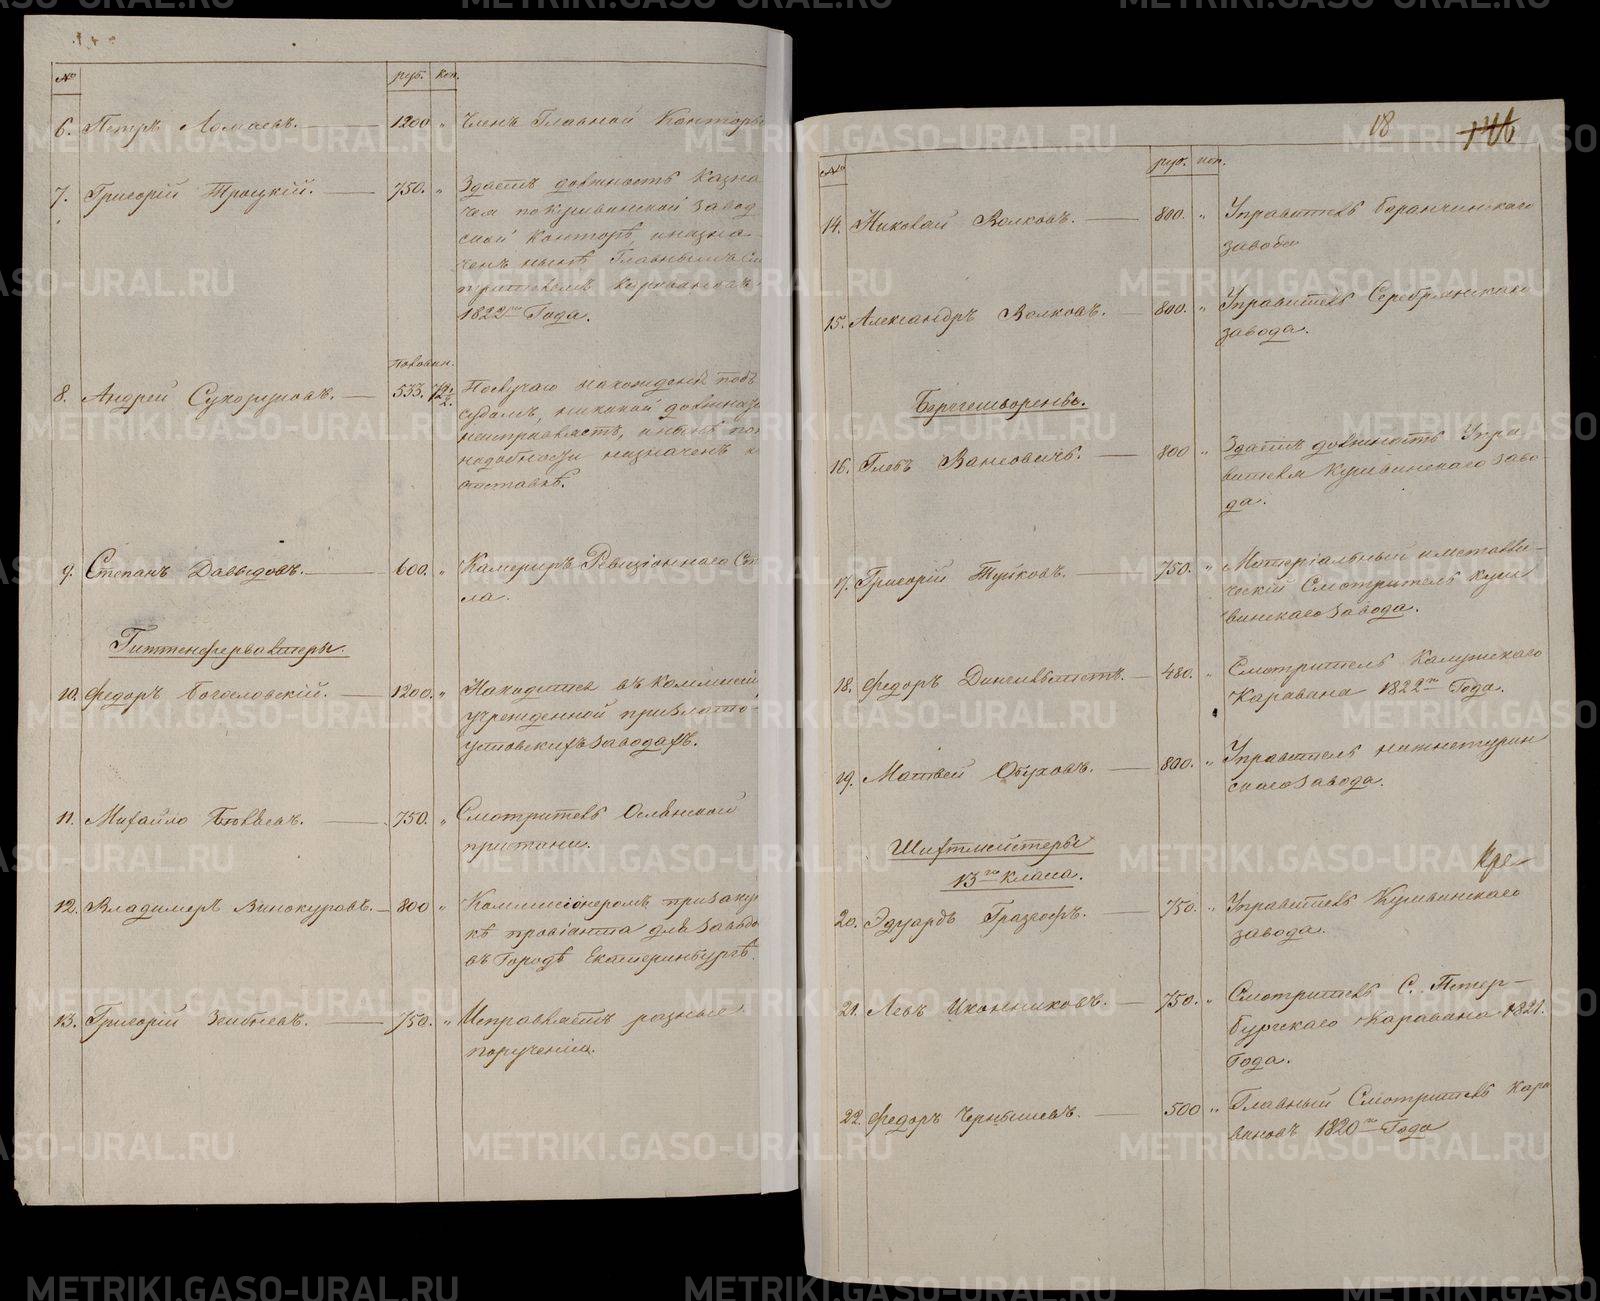 № руб. коп.
6. Петръ Ломаевъ. 1200 „ Членъ Главной Конторы
7. Григорій Троцкій. 750. „ Здаетъ должность Казна
чея покушвинской завод
ской Конторѣ, иназна
ченъ нынѣ Главнымъ См
трителемъ Каравановъ
1822го Года.
Половин.
8. Андрей Сухоруковъ. 533. Послучаю нахожденія подъ
судомъ, никакой должност
неисправляетъ, инынѣ по
надобности назначенъ к
отставкѣ.
9. Степанъ Давыдовъ. 600. „ Камериръ Ревизіоннаго Ст
ла.
Гиттенфервалтеры.
10. Федоръ Богословскій. 1200. „ Находится въ Коммисіи
учрежденной приЗлато-
устовскихъ Заводахъ.
11. Михайло 750. „ Смотритель Ослянской
пристани.
12. Владимеръ Винокуровъ. 800 „ Коммисіонеромъ призакуп
кѣ провіанта для Заводо
въ Городѣ Екатеринбургѣ.
13. Григорій 750. „ Исправляетъ разные
порученіи.
18 146
№ руб. коп.
14. Николай Волковъ. 800. „ Управитель Баранчинскаго
завода
15. Александръ Волковъ. 800. „ Управитель Серебрянскаго
завода.
Бергешворены.
16. Глебъ Вансовичь. 800 „ Здаетъ должность Упра
вителя Кушвинскаго заво
да.
17. Григорій Туйковъ. 750. „ Матеріальный иметалли-
ческій Смотритель Куш
винскаго Завода.
18. Федоръ 480. „ Смотритель Калужскаго
Каравана 1822го Года.
19. Матвей Обуховъ. 800. „ Управитель нижнетурин
скаго Завода.
Шихтмейстеры
13го класа.
Кре
20. Эдуардъ Грасгофъ. 750. „ Управитель Кушвинскаго
завода.
21. Левъ Иконниковъ. 750. „ Смотритель С. Петер-
бургскаго Каравана 1821.
Года.
22. Федоръ Чернышевъ. 500 „ Главный Смотритель Кара
вановъ 1820го Года
METRIKI.GASO-URAL.RU